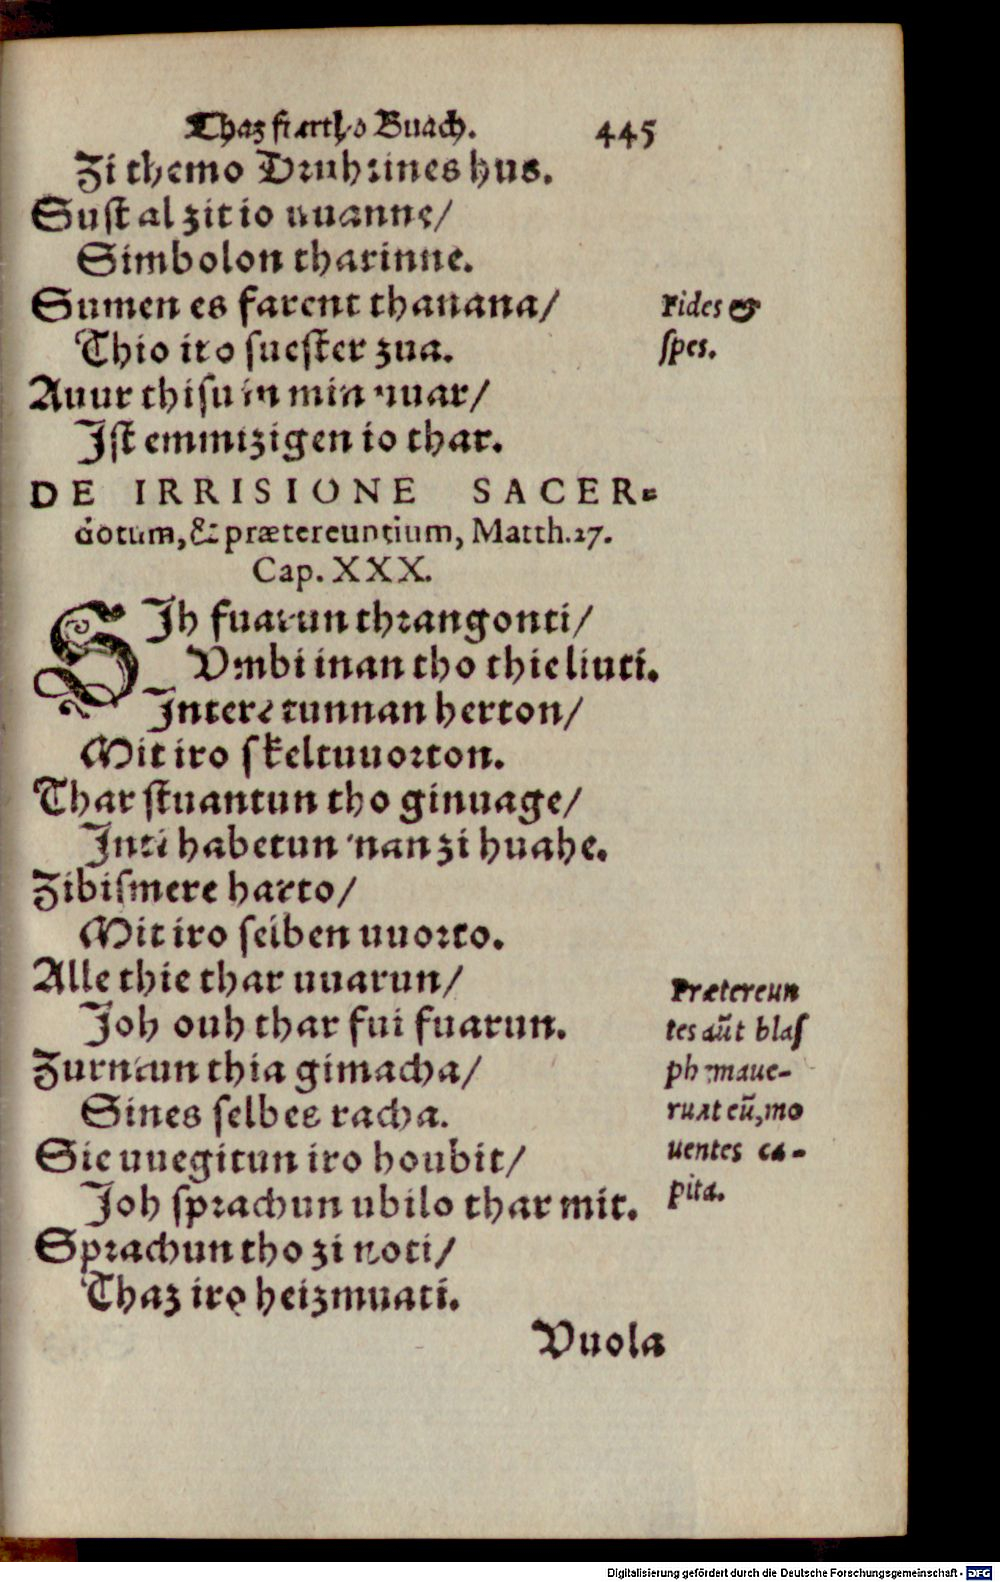 Thaz fiartho Buach. 445
Zi themo Druhtines hus.
Sust al zit io uuanne/
Simbolon tharinne.
Sumen es farent thanana/
Thio iro suester zua.
Auur thisu in min uuar/
Ist emmizigen io thar.
Fides &
spes.
DE IRRISIONE SACER-
dotum, & prætereuntium, Matth. 27.
Cap. XXX.
SIh fuarun thrangonti/
Vmbi inan tho thie liuti.
Intere tunnan herton/
Mit iro skeltuuorton.
Thar stuantun tho ginuage/
Inti habetun inan zi huahe.
Zi bismere harto/
Mit iro selben uuorto.
Alle thie thar uuarun/
Joh ouh thar fui fuarun.
Zurntun thia gimacha/
Sines selbes racha.
Sie uuegitun iro houbit/
Joh sprachun ubilo thar mit.
Sprachun tho zi noti/
Thaz iro heizmuati.
Prætereun
tes aūt blas
phemaue-
runt eū, mo
uentes ca-
pita.
Vuola
Digitalisierung gefördert durch die Deutsche Forschungsgemeinschaft - DFG